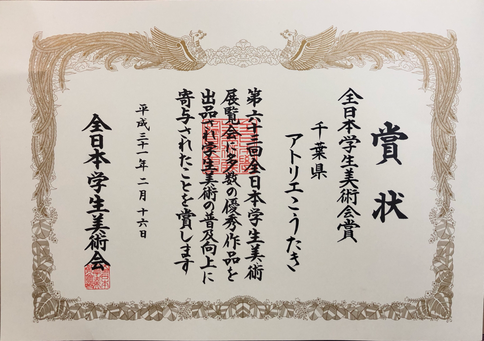 賞状
全日本学生美術会賞
千葉県
アトリエこうたき
第六十三回全日本学生美術
展覧会に多数の優秀作品を
出品され学生美術の普及向上に
寄与されたことを賞します
平成三十一年二月十六日
全日本学生美術会